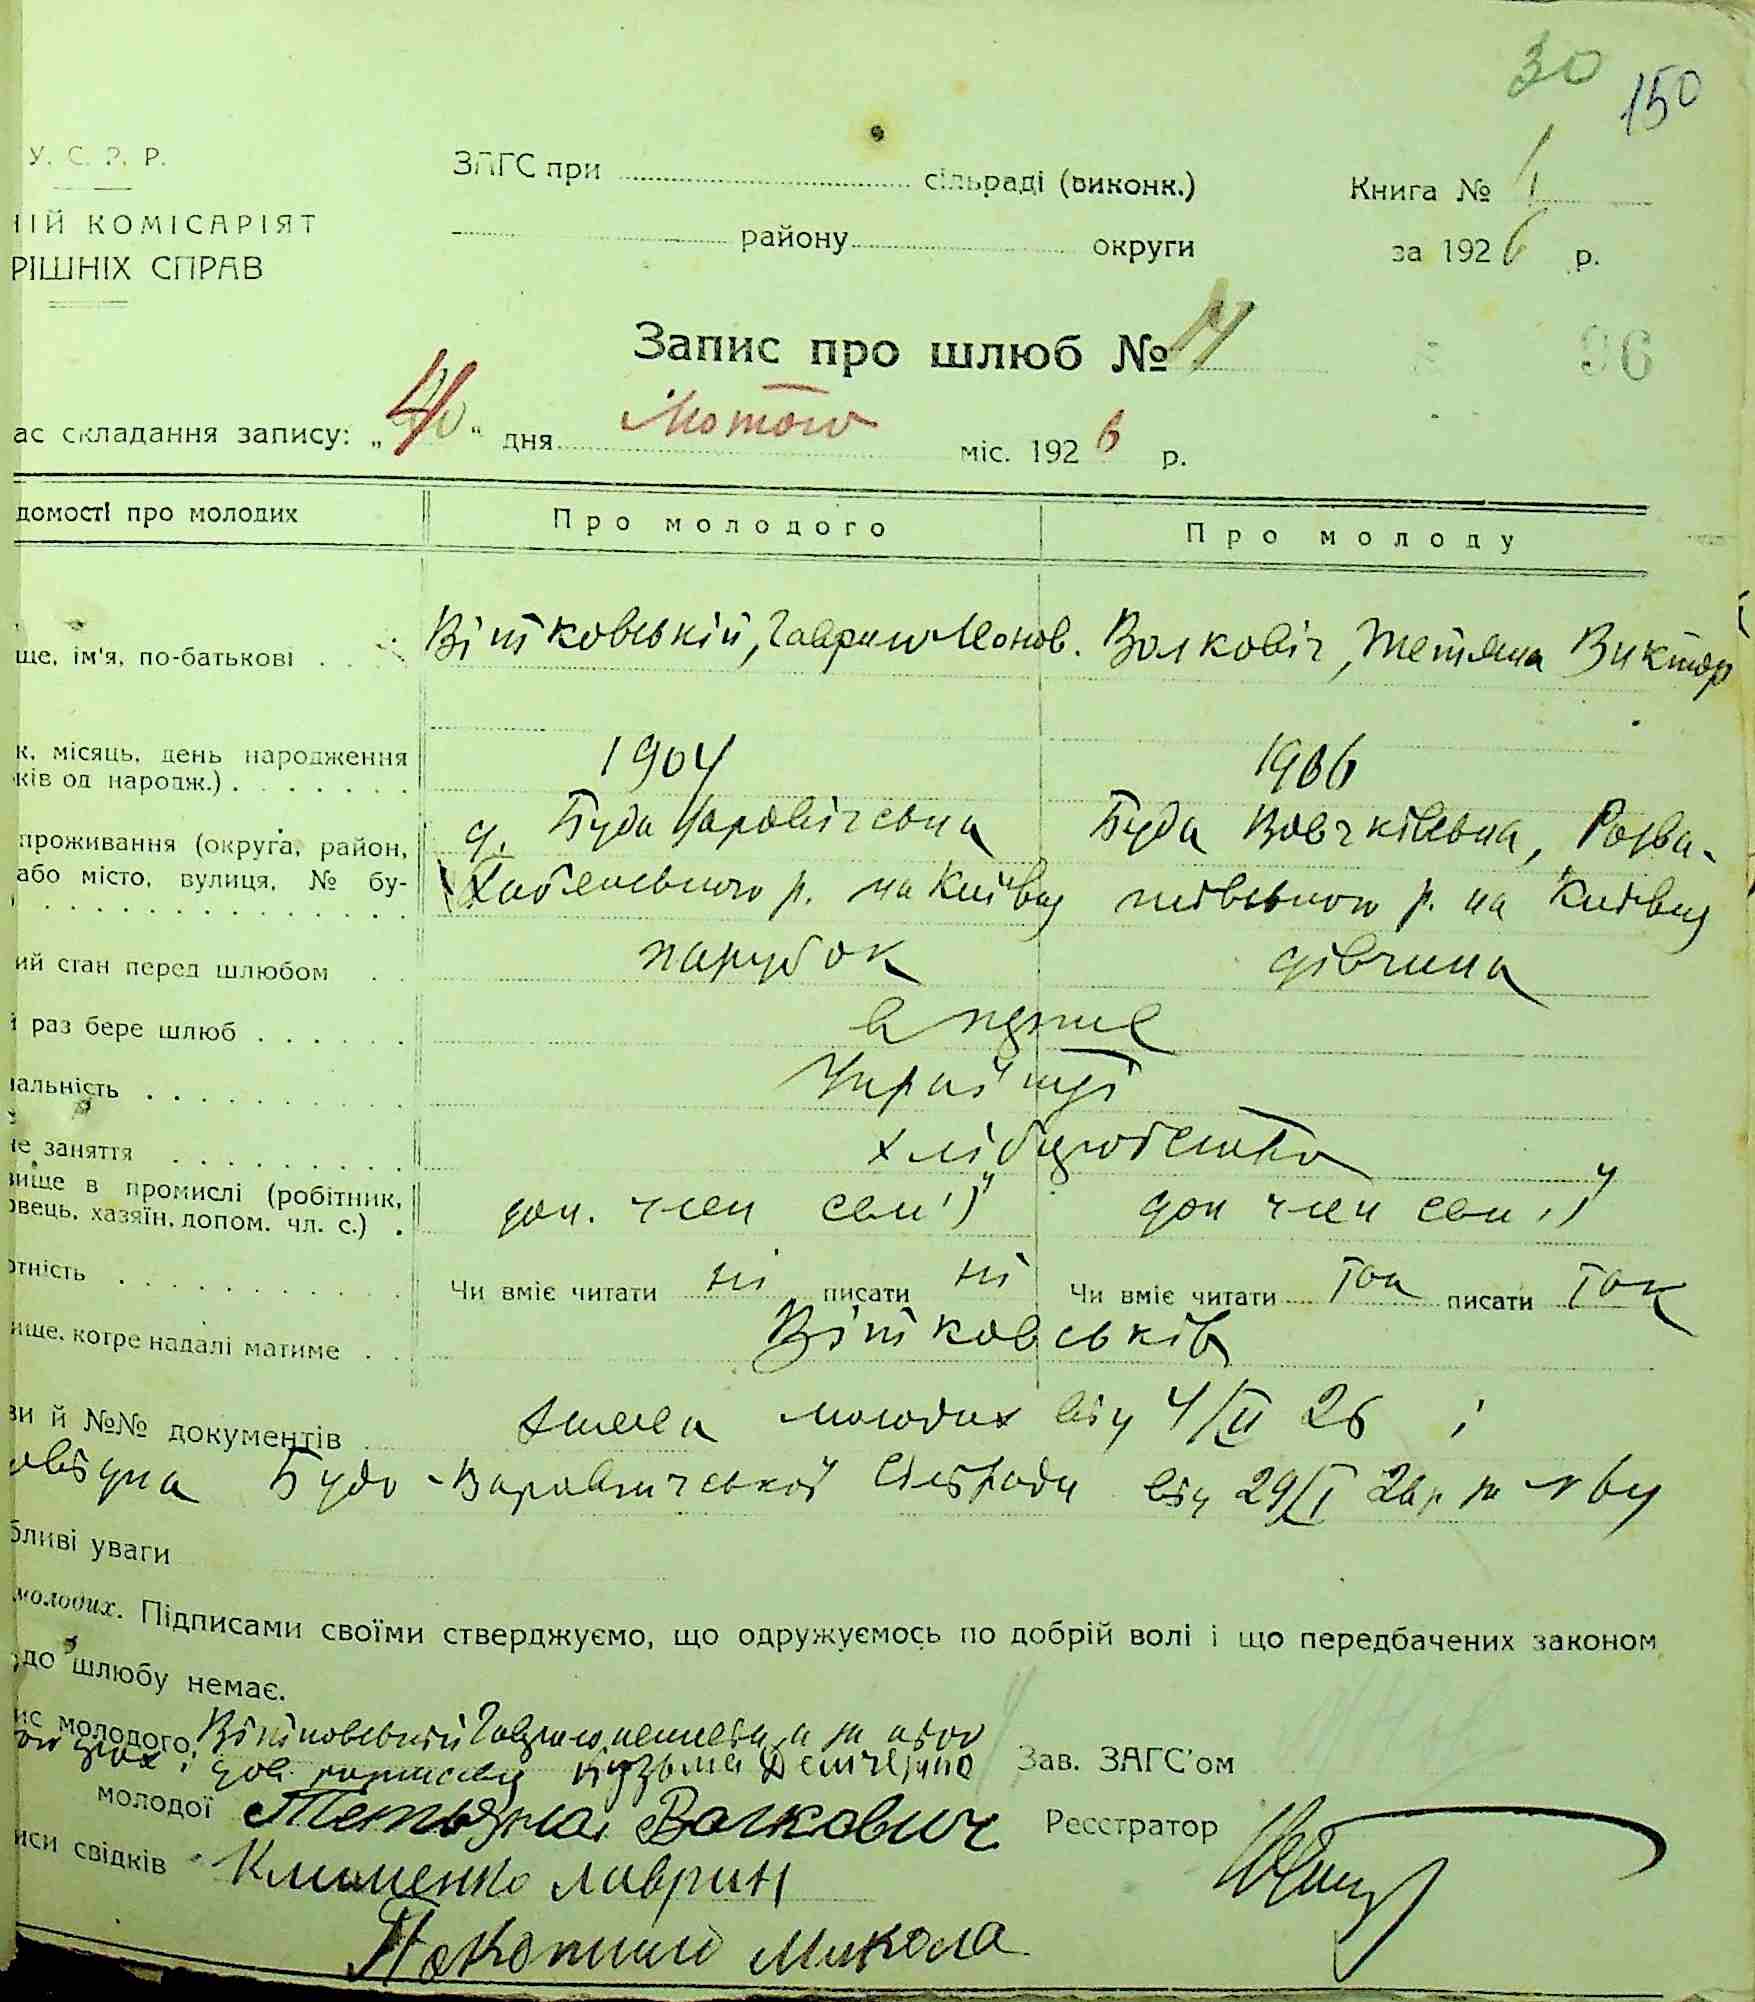 30
150
У. С. Р. Р.
ЗАГС при сільраді (виконк.)
Книга № 1
НІЙ КОМІСАРІЯТ
району округи
за 1926 р.
РІШНІХ СПРАВ
Запис про шлюб №
96
ас складання запису: „ “ дня Лютого міс. 1926 р.
домості про молодих
Про молодого
Про молоду
ще, ім'я, по-батькові
Вітковській, Гаврило Леонов. Волковіч, Тетяна Виктор
к, місяць, день народження
ків од народж.)
1904
1906
проживання (округа, район,
д. Буда Варовічська
Буда Вовчківська, Розва-
або місто, вулиця, № бу-
Хабенського р. на Київщ
жівського р. на Київщ
ий стан перед шлюбом
парубок
дівчина
й раз бере шлюб
вперше
нальність
Українці
не заняття
хліборобство
вище в промислі (робітник,
овець, хазяїн, допом. чл. с.)
доп. член семії
доп член семії
отність
Чи вміє читати ні писати ні
Чи вміє читати так писати так
ище, котре надалі матиме
Вітковськів
ви й №№ документів
Заява молодих від 4/II 26 і
овідка Будо-Варовичської сільради від 29/I 26 р за №
бливі уваги
молодих. Підписами своїми стверджуємо, що одружуємось по добрій волі і що передбачених законом
до шлюбу немає.
ис молодого, Вітковський Гаврило неписьм а за його
Кузьма Демченко
Зав. ЗАГС'ом
молодої Тетьяна Волкович
Реєстратор
иси свідків Клименко Лаврин
Микола